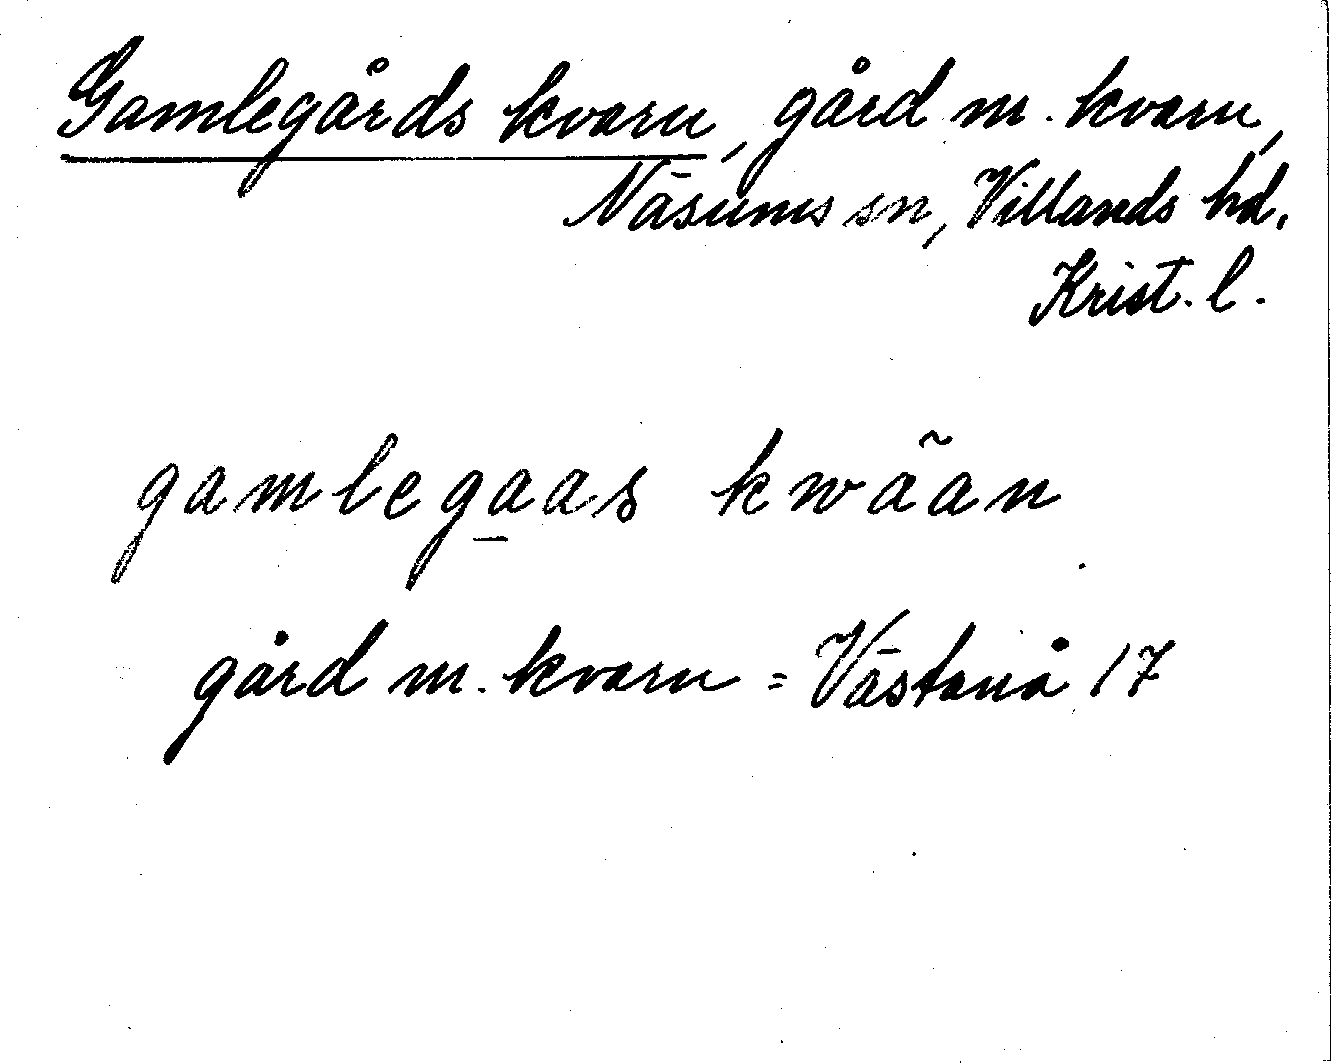 Gamlegårds kvarn, gård m. kvarn,
Näsums sn, Villands hd.
Krist. l.
gamlega̲as kwãan
gård m. kvarn = Västanå 17